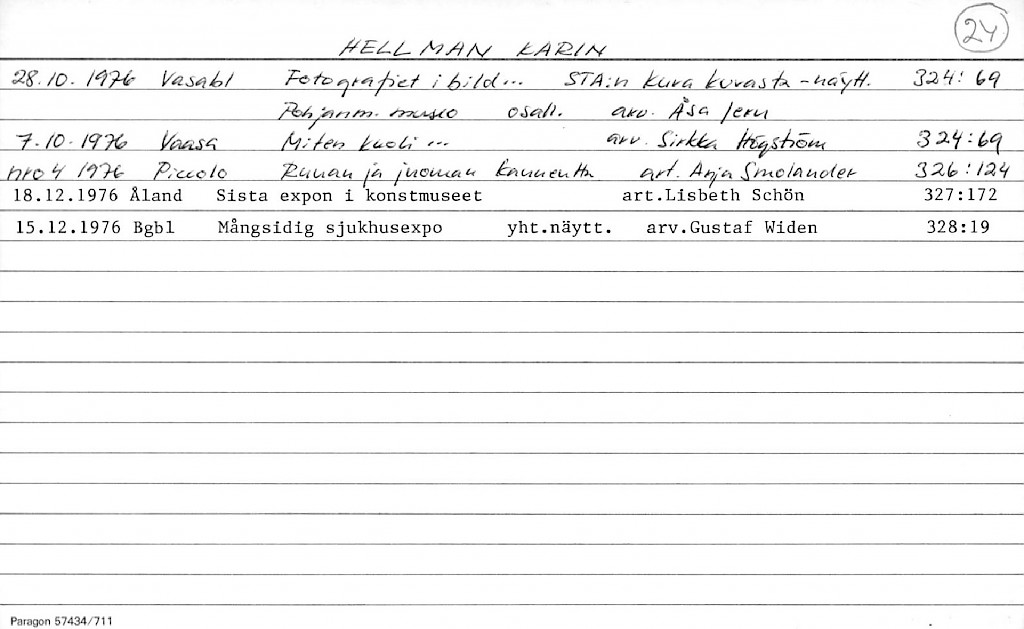 24
HELLMAN KARIN
28.10.1976 Vasabl Fotografiet i bild... STA:n Kuva kuvasta -näytt. 324:69
Pohjanm. museo osall. arv. Åsa
7.10.1976 Vaasa Miten kuoli ... arv. Sirkka Högström 324:69
nro 4 1976 Piccolo Ruuan ja juoman art. Anja Smolander 326:124
18.12.1976 Åland Sista expon i konstmuseet art.Lisbeth Schön 327:172
15.12.1976 Bgbl Mångsidig sjukhusexpo yht.näytt. arv.Gustaf Widen 328:19
Paragon 57434/711